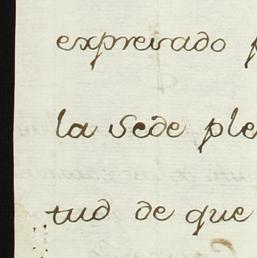 expresado
la Sede ple
tud de que